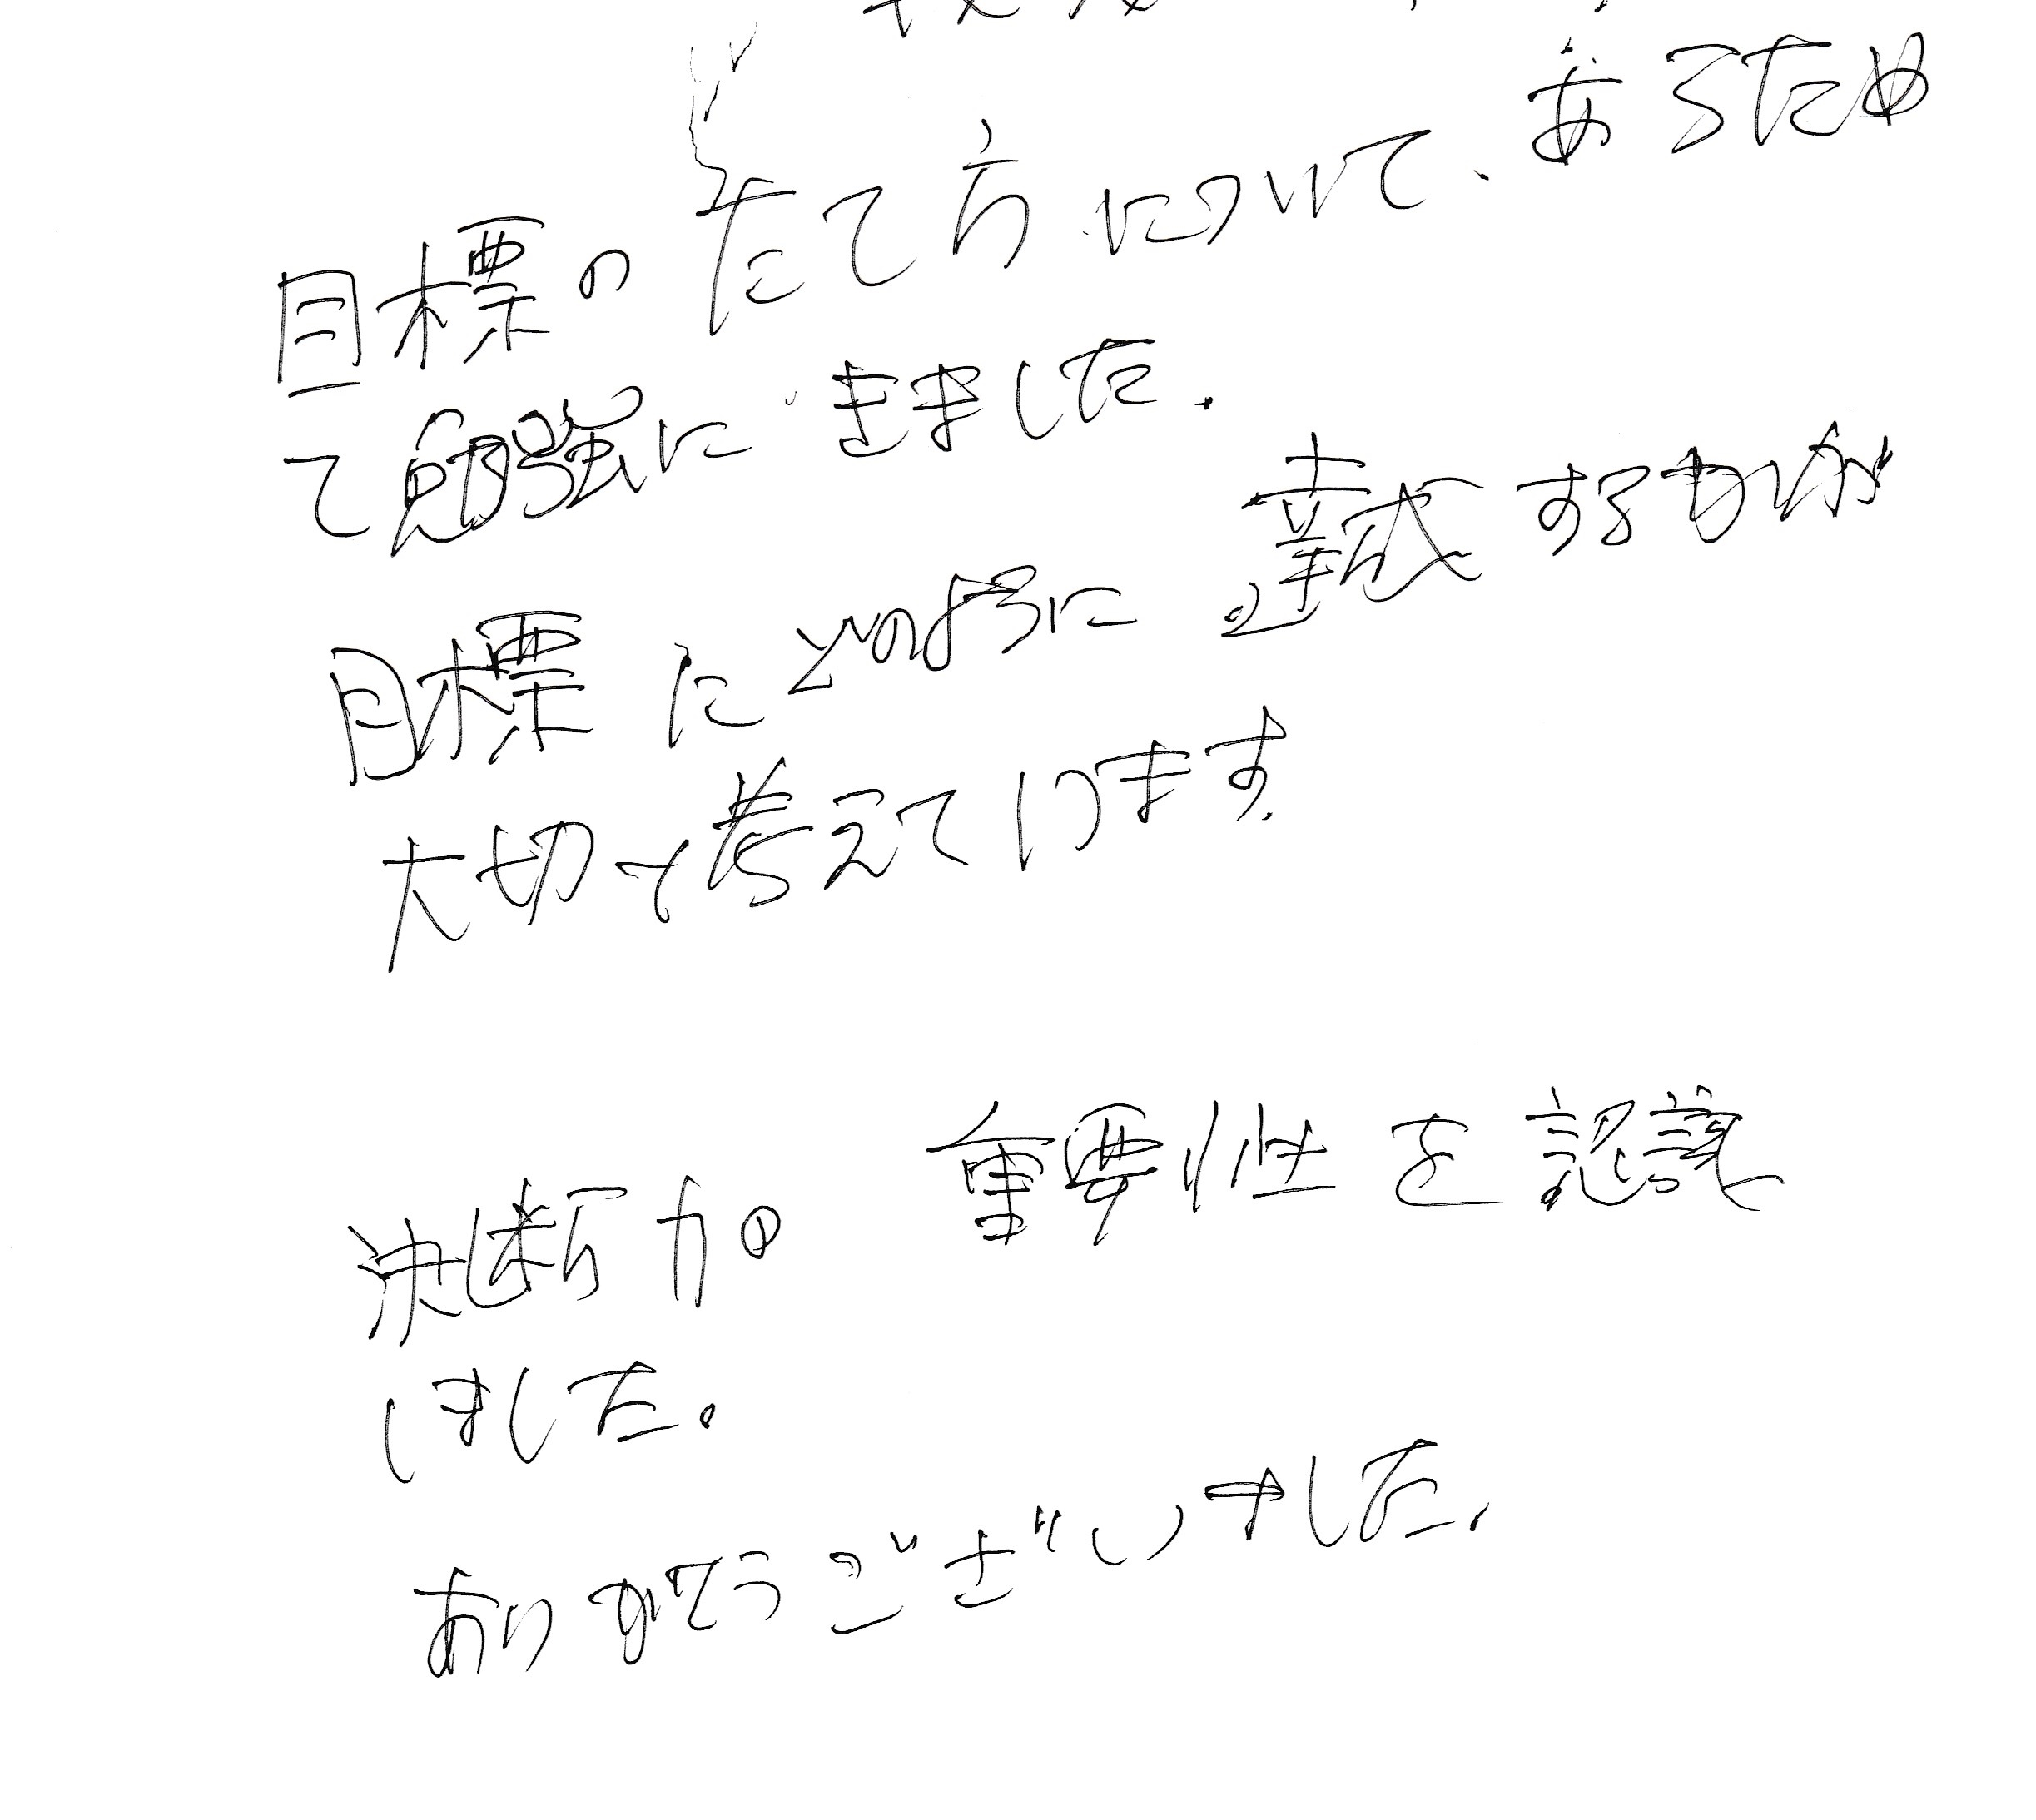 目標のたて方について、あるため
て勉強にきました.
目標にどのように達成するもんが
大切と考えています.
決断力の 重要性を認識
しました。
ありがとうございました.